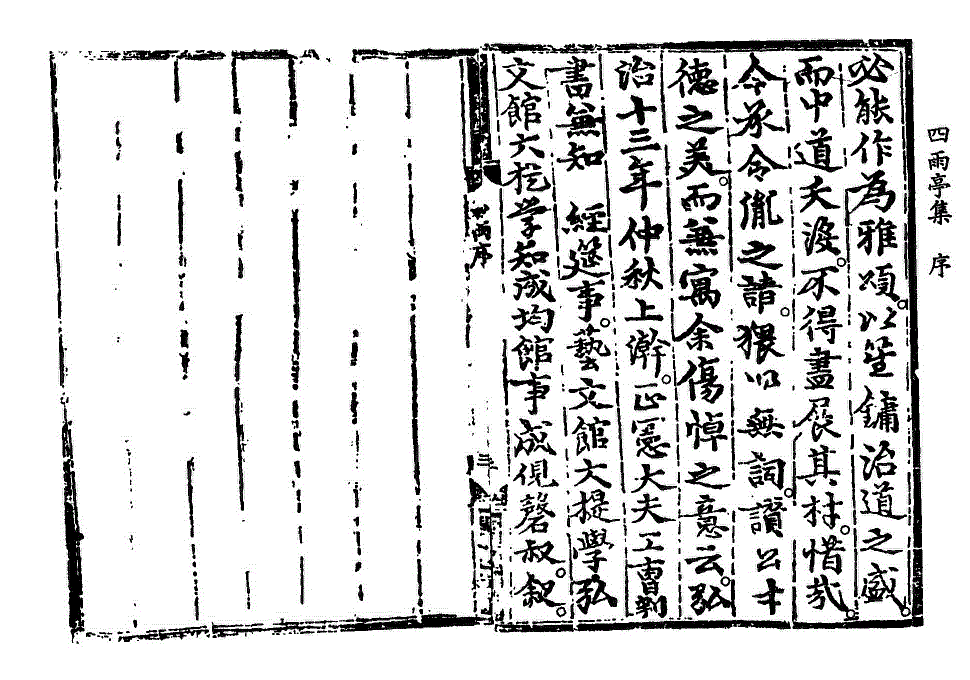 四雨亭集 序
必能作為雅頌。以笙鏞治道之盛。
而中道夭沒。不得盡展其材。惜哉。
今承令胤之請。猥以蕪詞。讃公才
德之美。而兼寓余傷悼之意云。弘
治十三年仲秋上澣。正憲大夫工曹判
書兼知 經筵事。藝文館大提學弘
文館大提學知成均館事成俔磬叔。叙。
雨序 三